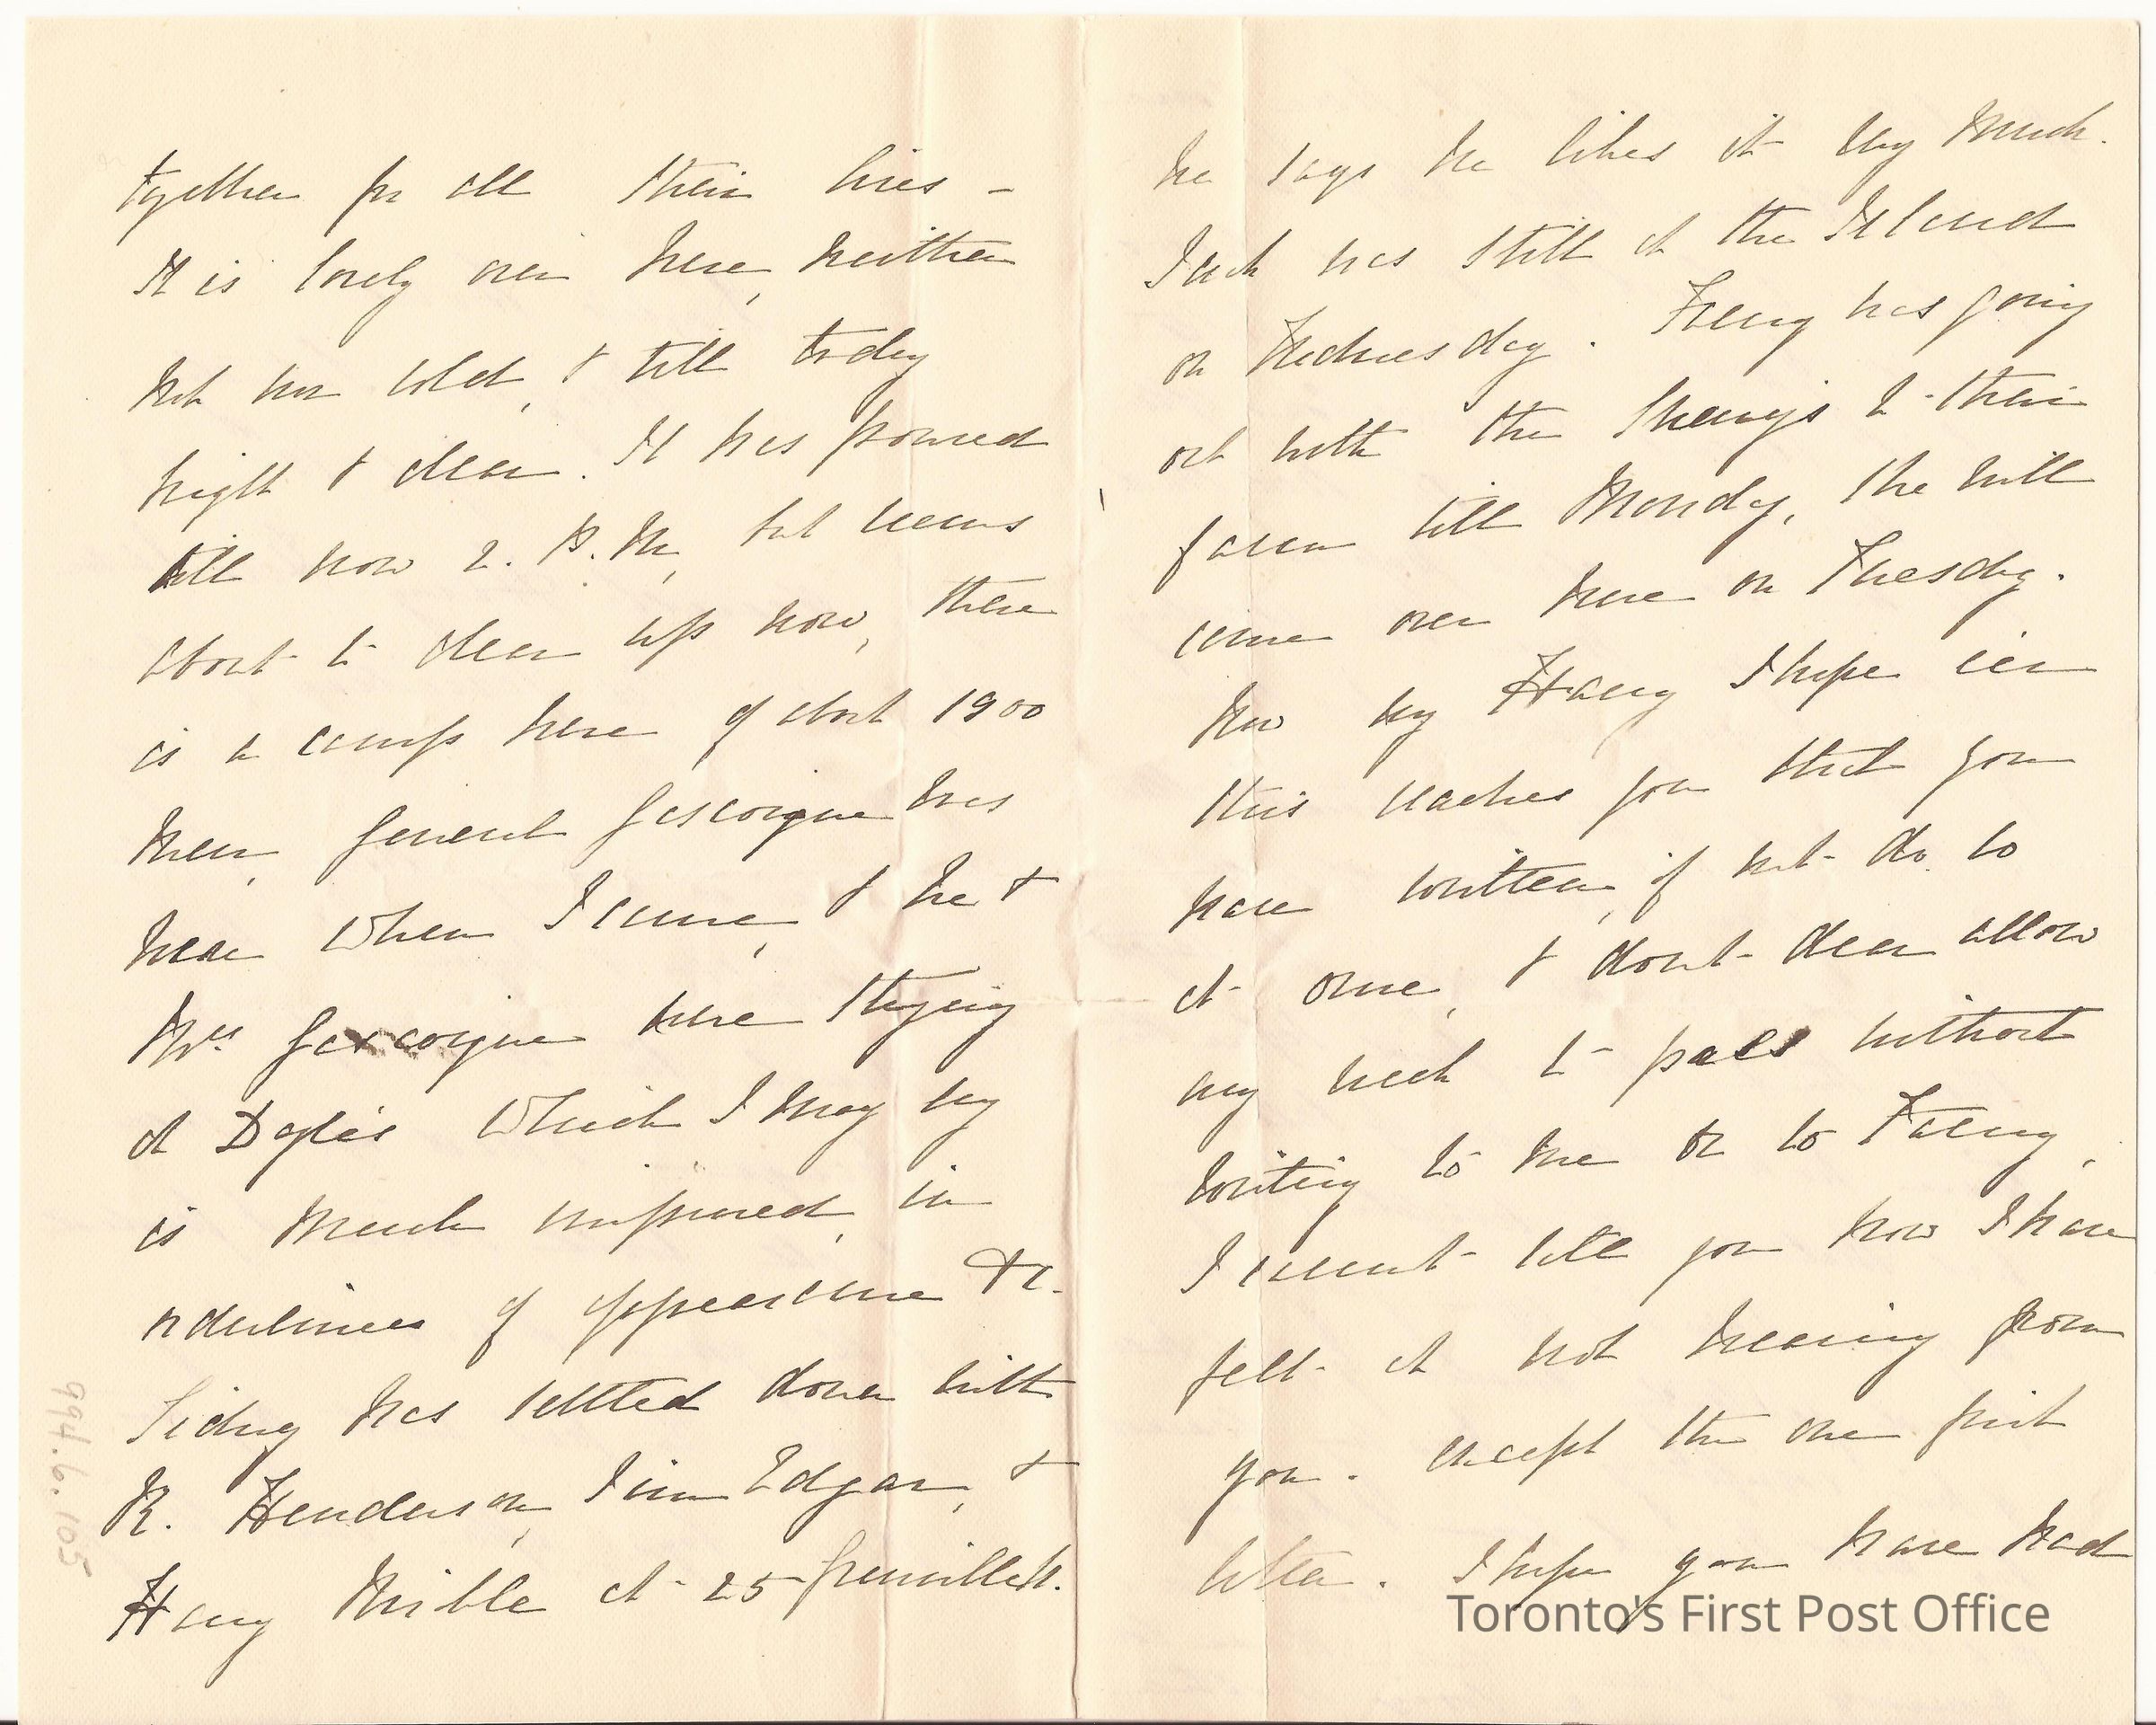 together for all their lives –
It is lovely over here, neither
hot nor cold, & till today
bright & clear. It has poured
till now 2. P.M, but seems
about to clear up now, there
is a camp here of about 1900
men, General Gascoigne was
here when I came, & he &
Mrs Gascoigne were staying
at Doyles which I may say
is much improved, in
orderliness of appearance &c.
Sidney has settled down with
R. Henderson, Jim Edgar, &
Harry at 25 Grenville st.
he says he likes it very much.
Jack was still at the Island
on Wednesday. Fanny was going
out with the to their
farm till Monday, she will
come over here on Tuesday.
Now my Harry I hope ere
this reaches you that you
have written, if not do so
at once, & dont dear allow
any week to pass without
writing to me or to Fanny,
I cannot tell you how I have
felt at not hearing from
you. except the one first
letter. I hope you have had
994.6.105
Toronto's First Post Office